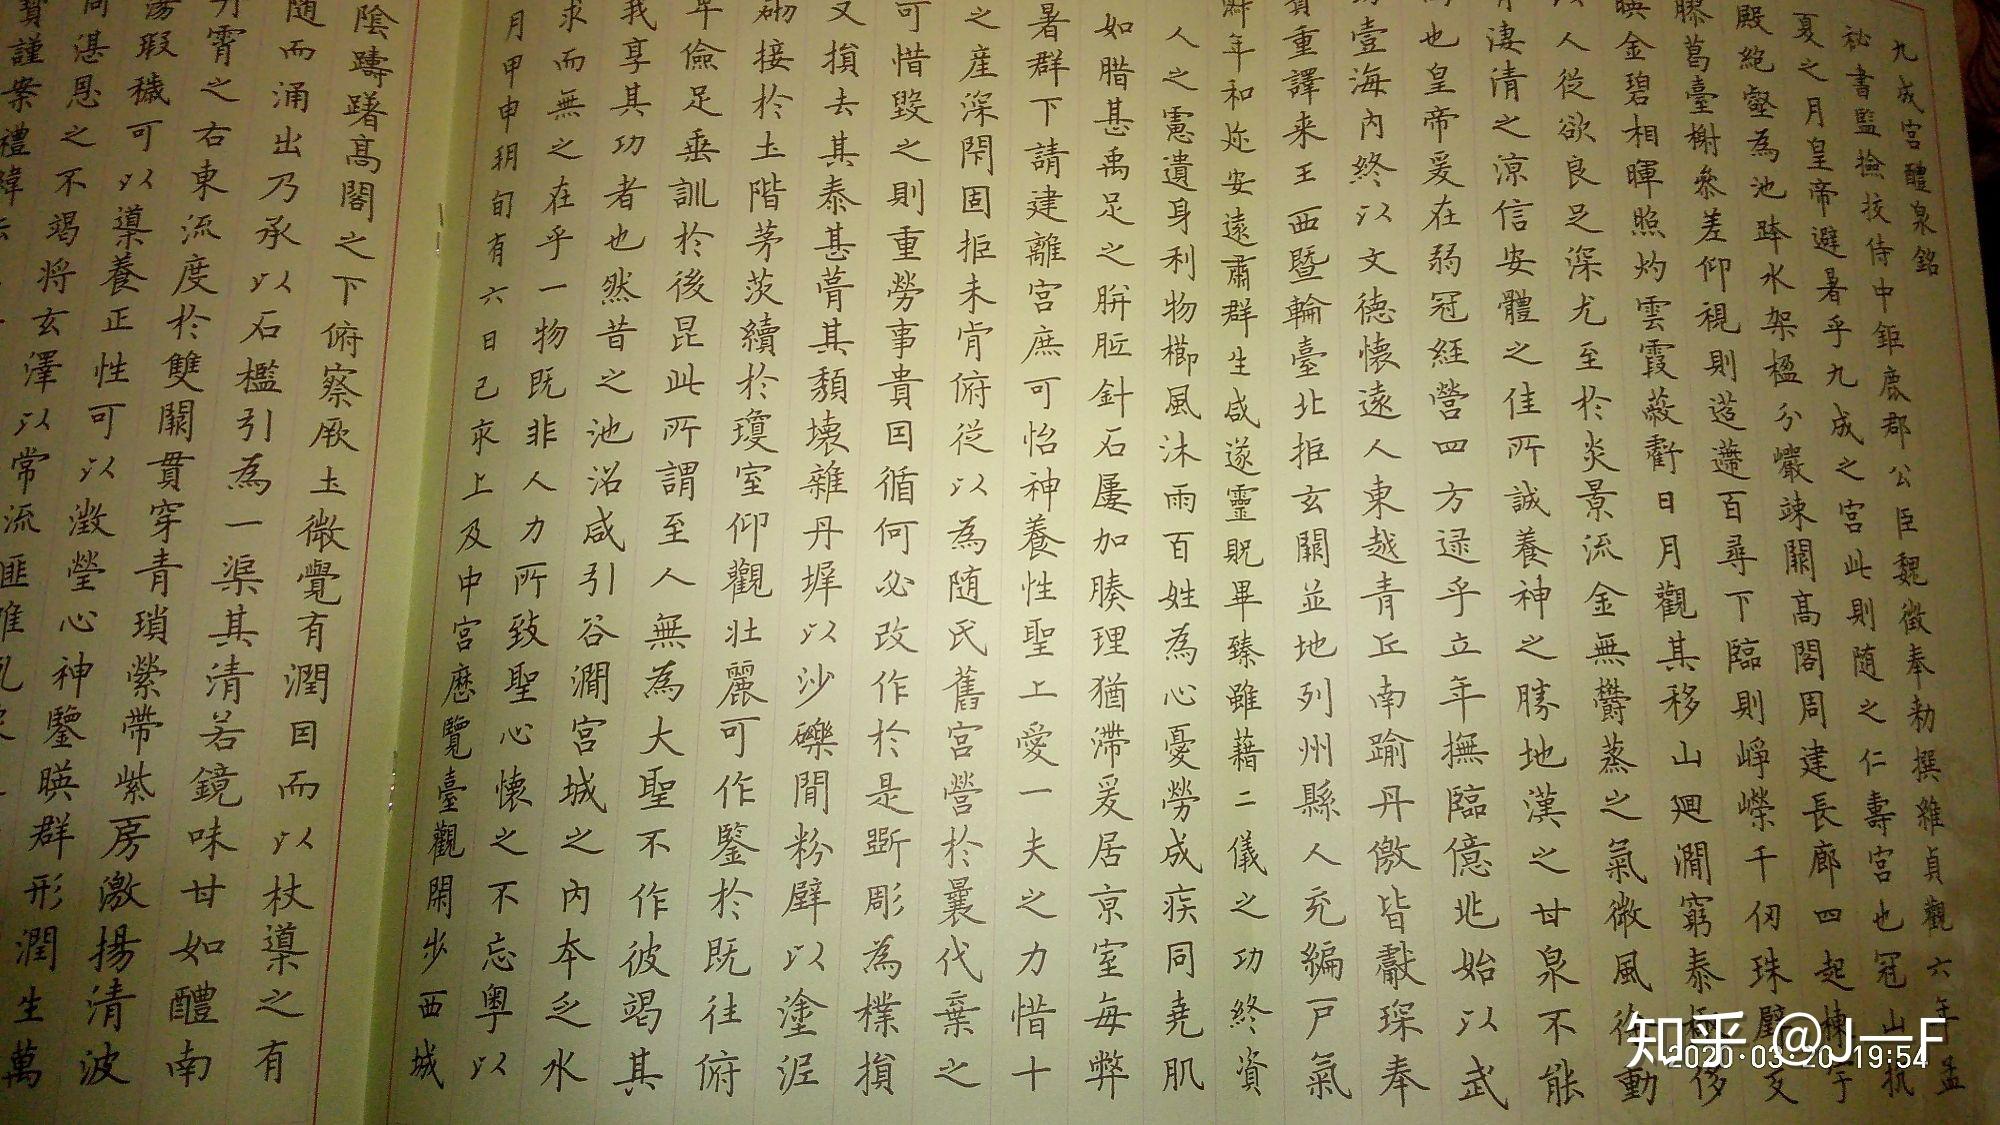 九成宮醴泉銘
祕書監撿挍侍中鉅鹿郡公臣魏徵奉勅撰維貞觀六年孟
夏之月皇帝避暑乎九成之宮此則随之仁壽宮也冠山抗
殿絕壑為池跨水架楹分巖竦闕高閣周建長廊四起棟宇
膠葛臺榭參差仰視則迢遰百尋下臨則崢嶸千仞珠璧交
暎金碧相暉照灼雲霞蔽虧日月觀其移山廻澗窮泰極侈
以人從欲良足深尤至於炎景流金無鬱蒸之氣微風徐動
有淒清之涼信安體之佳所誠養神之勝地漢之甘泉不能
尚也皇帝爰在弱冠経營四方逯乎立年撫臨億兆始以武
功壹海內終以文德懷遠人東越青丘南踰丹儌皆獻琛奉
贄重譯来王西暨輪臺北拒玄闕並地列州縣人充編戶氣
淑年和迩安遠肅群生咸遂靈貺畢臻雖藉二儀之功終資
人之憲遺身利物櫛風沐雨百姓為心憂勞成疾同堯肌
如腊甚禹足之胼胝針石屢加腠理猶滯爰居京室每弊
暑群下請建離宮庶可怡神養性聖上愛一夫之力惜十
之産深閇固拒未肯俯從以為随氏舊宮營於曩代棄之
可惜毀之則重勞事貴因循何必改作於是斲彫為樸損
又損去其泰甚葺其頹壞雜丹墀以沙礫間粉壁以塗泥
砌接於土階茅茨續於瓊室仰觀壯麗可作鑒於既往俯
卑儉足垂訓於後昆此所謂至人無為大聖不作彼竭其
我享其功者也然昔之池沼咸引谷澗宮城之內本乏水
求而無之在乎一物既非人力所致聖心懷之不忘粤以
月甲申朔旬有六日己亥上及中宮歷覽臺觀閑步西城
陰躊躇高閣之下俯察厥土微覺有潤因而以杖導之有
随而涌出乃承以石檻引為一渠其清若鏡味甘如醴南
霄之右東流度於雙闕貫穿青瑣縈帶紫房激揚清波
蕩瑕穢可以導養正性可以澂瑩心神鑒暎群形潤生萬
同湛恩之不竭将玄澤以常流匪唯乾
寶謹案禮緯
知乎 @J一F
2020·03·20 19:54